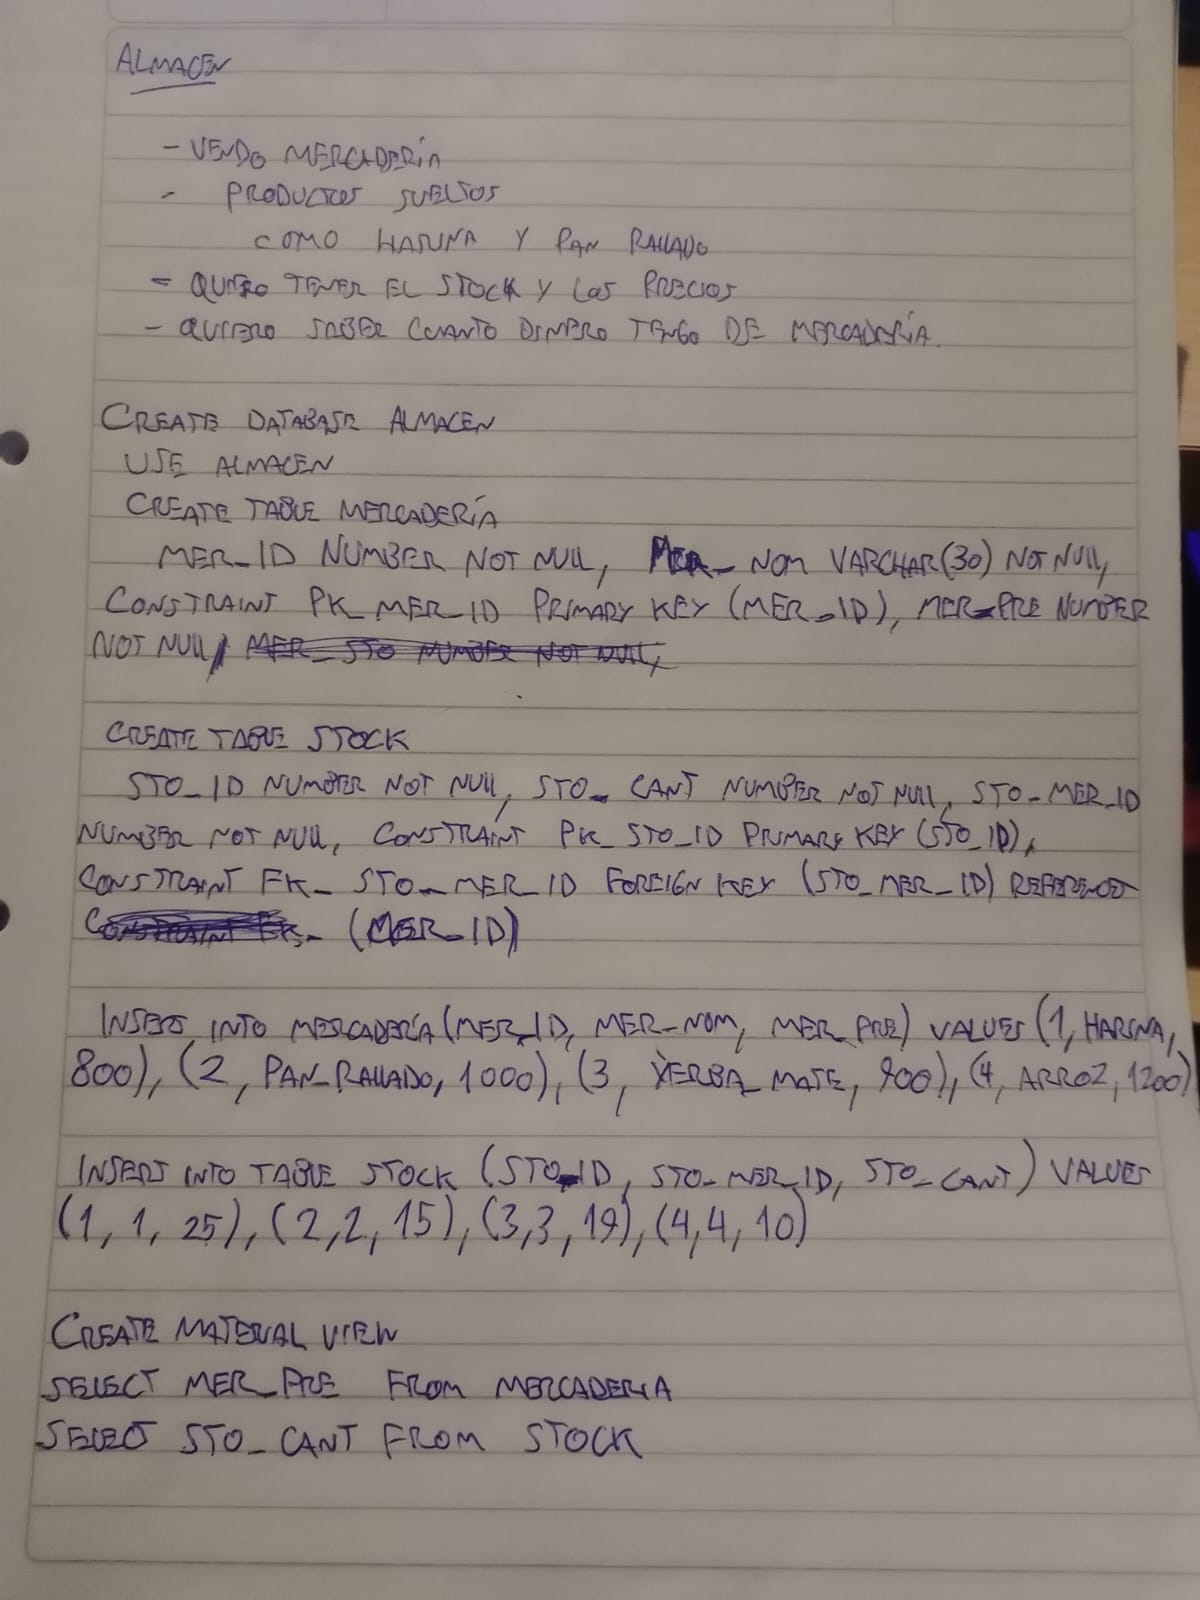 ALMACEN
- VENDO MERCADERÍA
- PRODUCTOS SUELTOS
COMO HARINA Y PAN RALLADO
- QUIERO TENER EL STOCK Y LOS PRECIOS
- QUIERO SABER CUANTO DINERO TENGO DE MERCADERÍA.
CREATE DATABASE ALMACEN
USE ALMACEN
CREATE TABLE MERCADERÍA
MER_ID NUMBER NOT NULL, MER_NOM VARCHAR(30) NOT NULL,
CONSTRAINT PK_MER_ID PRIMARY KEY (MER_ID), MER_PRE NUMBER
NOT NULL, MER_STO NUMBER NOT NULL,
CREATE TABLE STOCK
STO_ID NUMBER NOT NULL, STO_CANT NUMBER NOT NULL, STO_MER_ID
NUMBER NOT NULL, CONSTRAINT PK_STO_ID PRIMARY KEY (STO_ID),
CONSTRAINT FK_STO_MER_ID FOREIGN KEY (STO_MER_ID)
CONSTRAINT FK_ (MER_ID)
INSERT INTO MERCADERÍA (MER_ID, MER_NOM, MER_PRE) VALUES (1, HARINA,
800), (2, PAN_RALLADO, 1000), (3, YERBA_MATE, 900), (4, ARROZ, 1200)
INSERT INTO TABLE STOCK (STO_ID, STO_MER_ID, STO_CANT) VALUES
(1, 1, 25), (2,2,15), (3,3,19), (4,4,10)
CREATE MATERIAL VIEW
SELECT MER_PRE FROM MERCADERIA
SELECT STO_CANT FROM STOCK